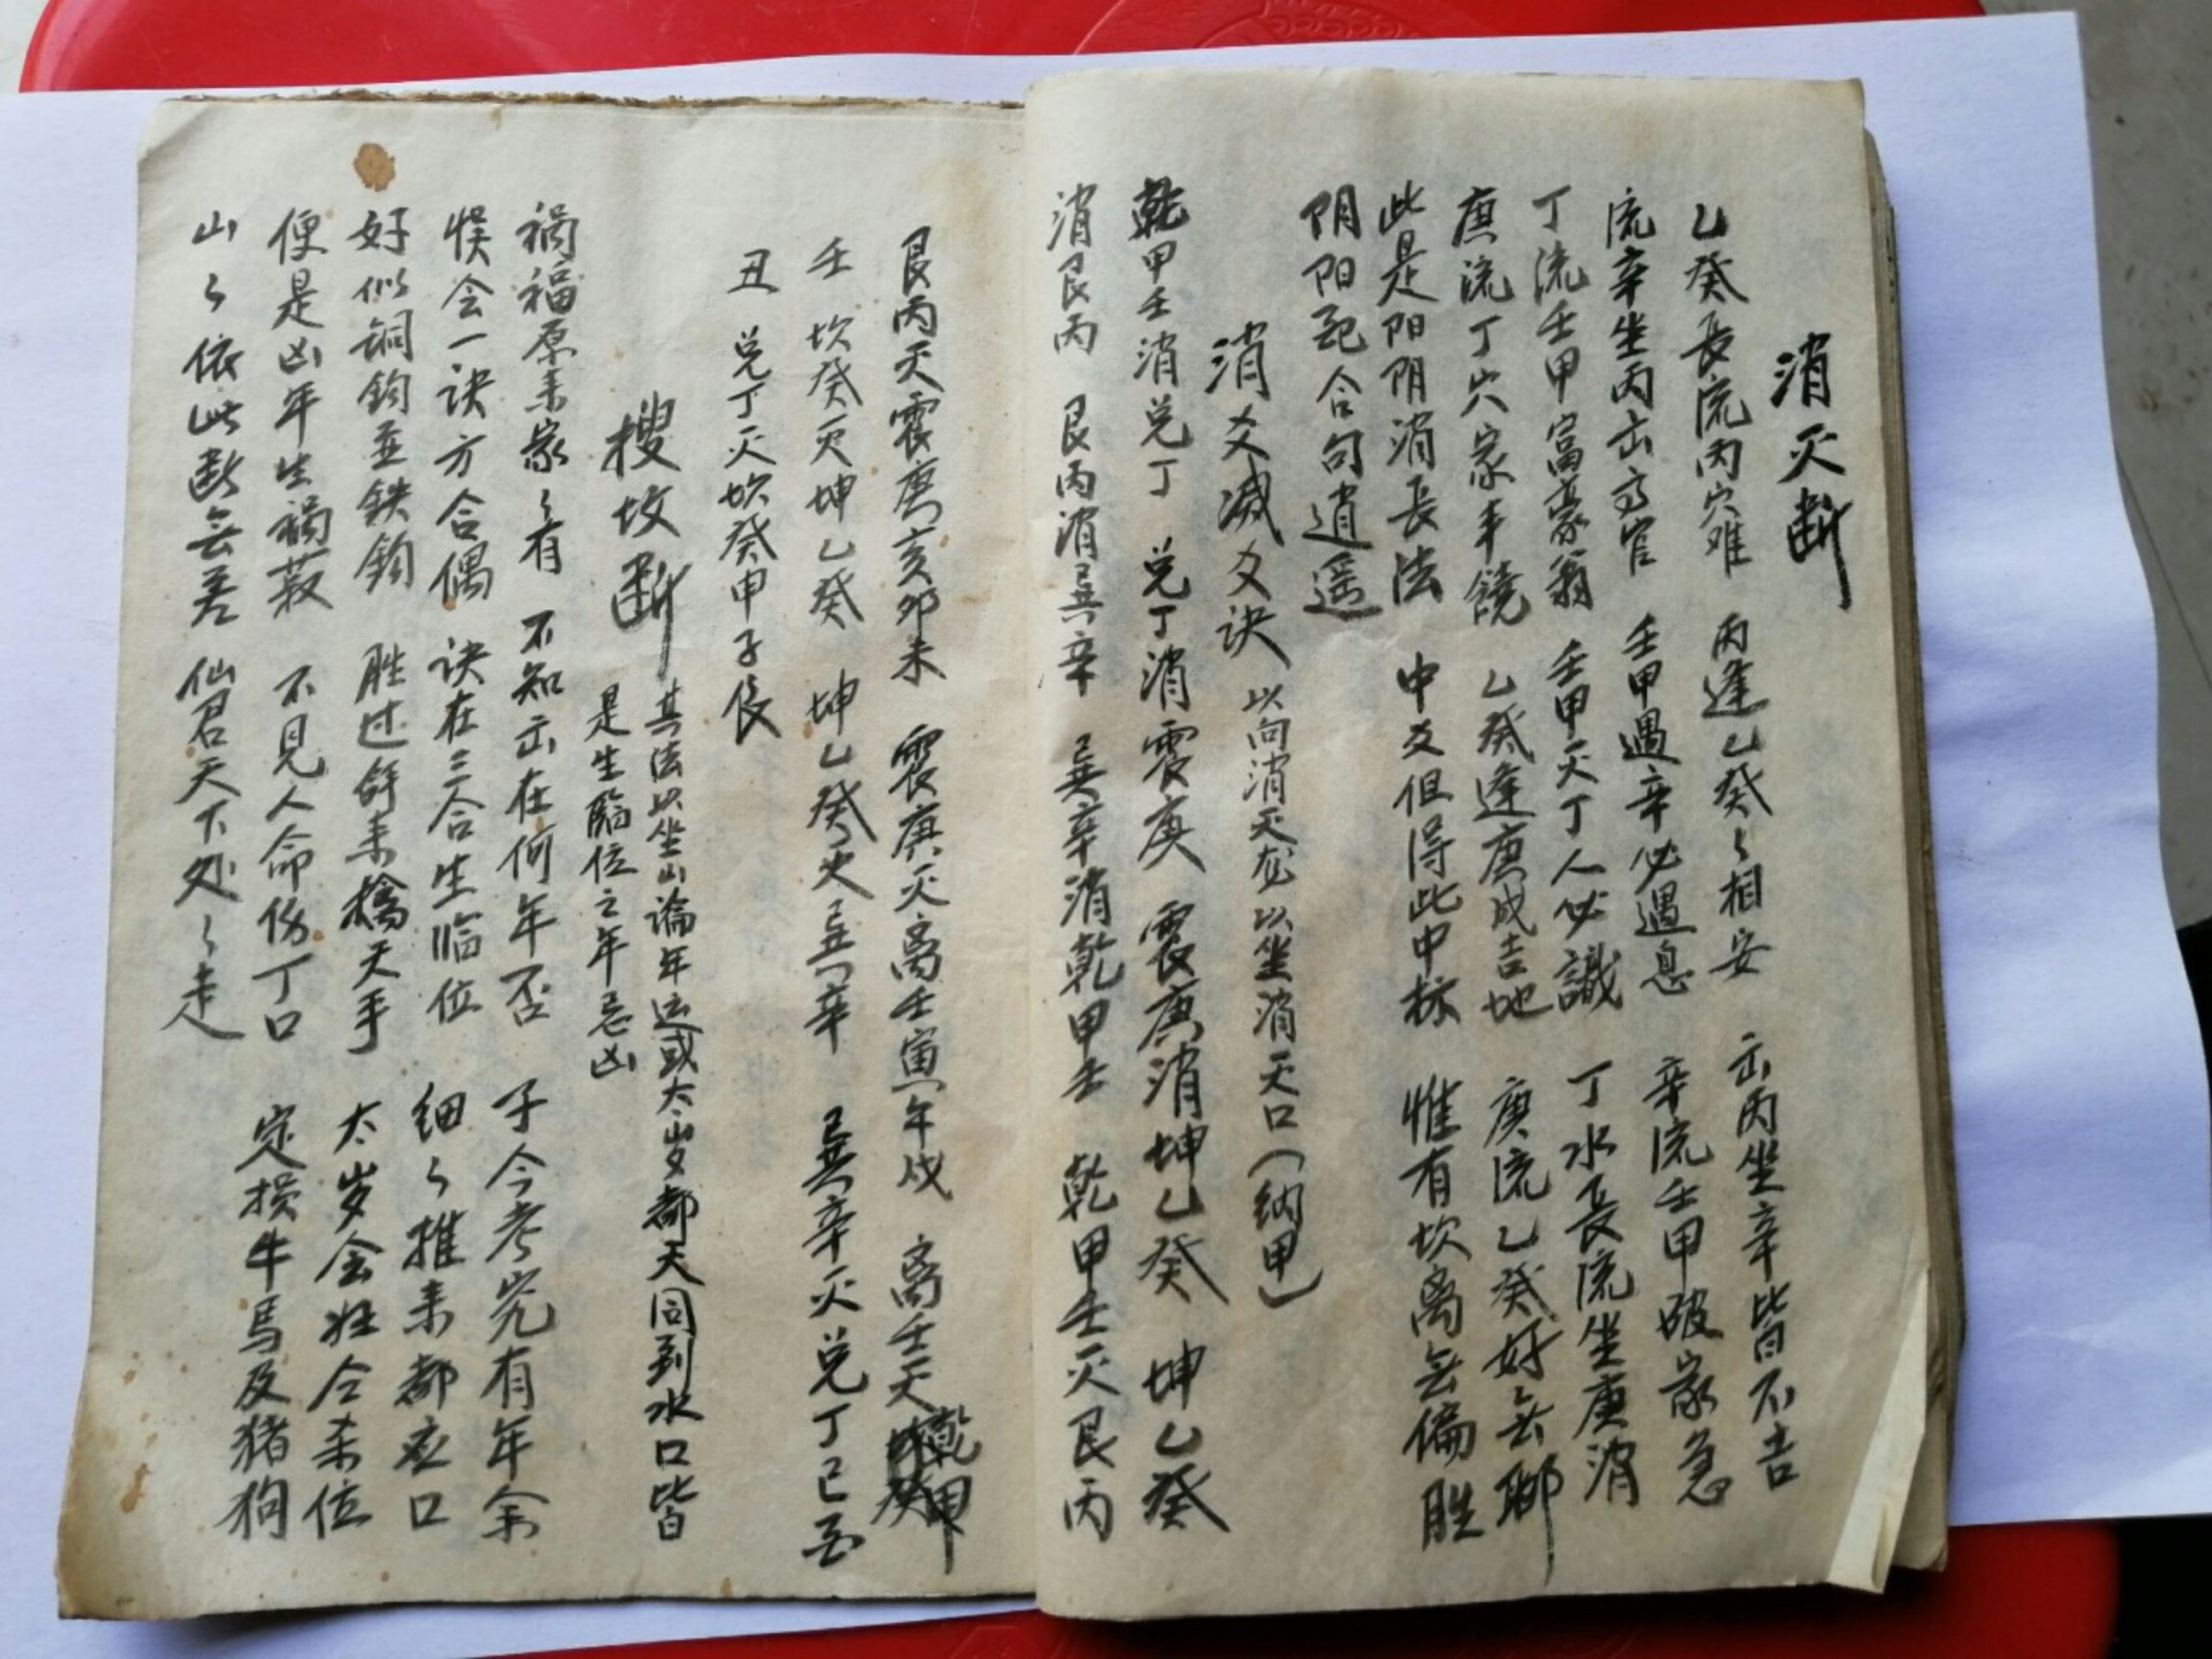 消灭断
乙癸長流丙穴难 丙逢乙癸々相安 立丙坐辛皆不吉
流辛坐丙出高官 壬甲遇辛必遇息 辛流壬甲破家急
丁流壬甲富豪翁 壬甲灭丁人必識 丁水長流坐庚消
庚流丁穴家丰饒 乙癸逢庚成吉地 庚流乙癸好无聊
此是阳阴消長法 中爻但得此中标 惟有坎离无偏胜
阴阳配合句逍遥
消爻滅爻诀 以向消灭龙 以坐消灭口(纳甲)
乾甲壬消兑丁 兑丁消震庚 震庚消坤乙癸 坤乙癸
消艮丙 艮丙消巽辛 巽辛消乾甲壬 乾甲壬灭艮丙
艮丙灭震庚亥卯未 震庚灭离壬寅午戌 离壬灭乾甲
壬坎癸灭坤乙癸 坤乙癸灭巽辛 巽辛灭兑丁巳酉
丑 兑丁灭坎癸申子辰
搜坟断 其法以坐山論年运或太岁都天同到水口皆
是生臨位之年忌凶
禍福原来家々有 不知出在何年否 于今考究有年余
悮会一诀方合偶 诀在三合生临位 细々推来都应口
好似铜鈎並鉄鈎 胜过舒来擒天手 太岁会班合杀位
便是凶年生禍菽 不見人命伤丁口 定损牛馬及猪狗
山々依此断无差 仙君天下处々走